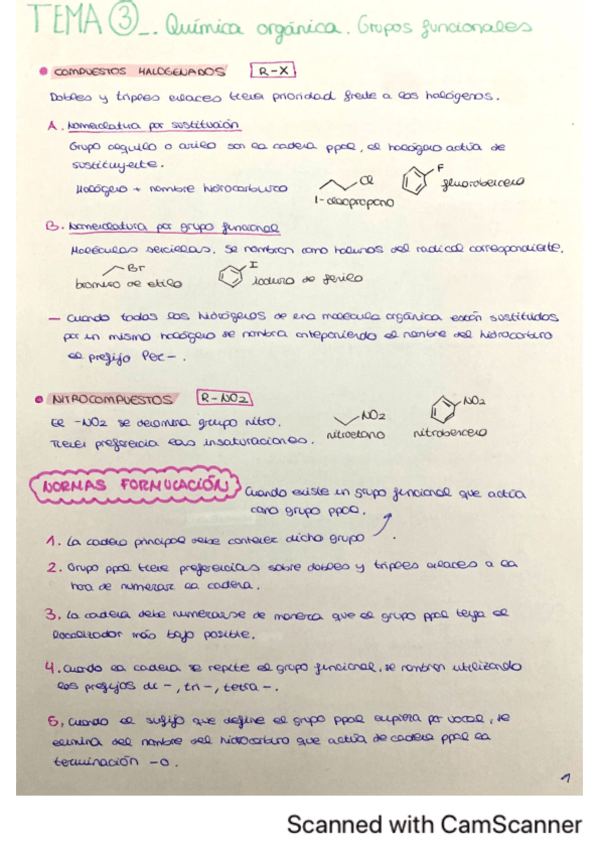 TEMA ③ _. Química orgánica. Grupos funcionales
COMPUESTOS HALOGENADOS R-X
Dobles y triples enlaces tienen prioridad frente a los halógenos.
A. Nomenclatura por sustitución
Grupo alquilo o arilo son la cadena ppal, el halógeno actúa de
sustituyente.
Halógeno + nombre hidrocarburo
Cl
1-cloropropano
F
fluorobenceno
B. Nomencladura por grupo funcional
Moléculas sencillas. Se nombran como haluros del radical correspondiente.
Br
bromuro de etilo
I
ioduro de fenilo
— Cuando todos los hidrógenos de una molécula orgánica están sustituidos
por un mismo halógeno se nombra anteponiendo al nombre del hidrocarburo
el prefijo Per-.
NITROCOMPUESTOS R-NO2
El -NO2 se denomina grupo nitro.
Tienen preferencia las insaturaciones.
NO2
nitroetano
NO2
nitrobenceno
NORMAS FORMULACIÓN} Cuando existe un grupo funcional que actúa
como grupo ppal.
1. La cadena principal debe contener dicho grupo.
2. Grupo ppal tiene preferencias sobre dobles y triples enlaces a la
hora de numerar la cadena.
3. La cadena debe numerarse de manera que el grupo ppal tenga el
localizador más bajo posible.
4. Cuando en cadena se repite el grupo funcional, se nombran utilizando
los prefijos di-, tri-, tetra-.
5. Cuando el sufijo que define el grupo ppal empieza por vocal, se
elimina del nombre del hidrocarburo que actúa de cadena ppal la
terminación -o.
1
Scanned with CamScanner